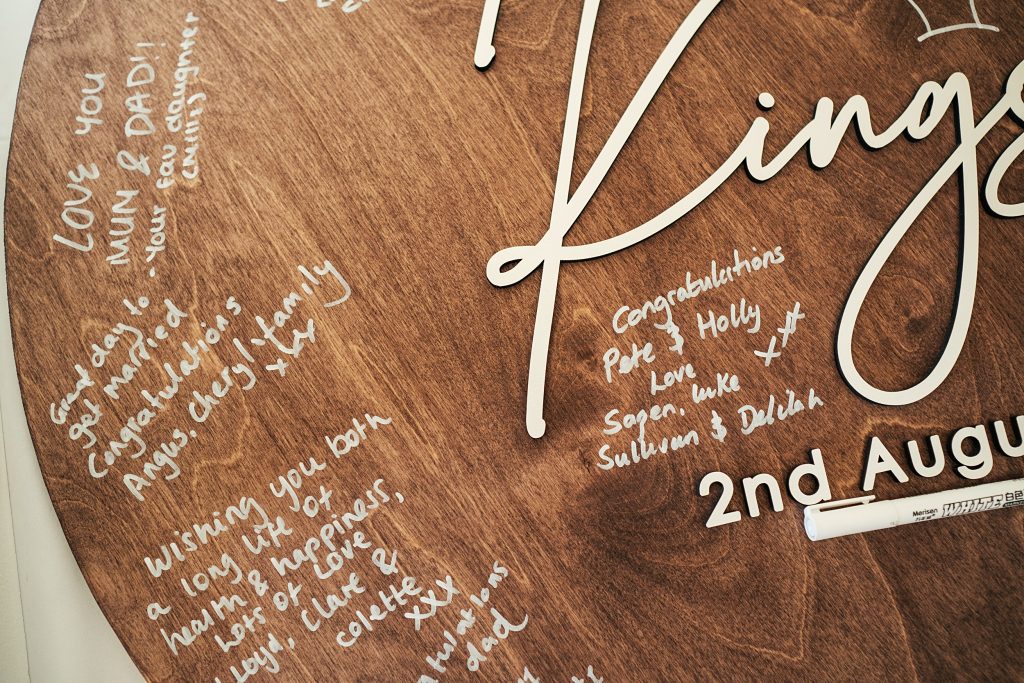 LOVE YOU
MUN & DAD!!
- Your fav daughter
(milly)
Great day to
get married
Congratulations
Angus, cheryl, family
xxx
Wishing you both
a long life of
health & happiness,
Lots of Love
Lloyd, Clare &
colette
xxx
dad
Kings
Congratulations
Pete & Holly
Love
Sagen, Luke
Sullivan & Delilah
2nd Augu
Morisen WHITE 白色